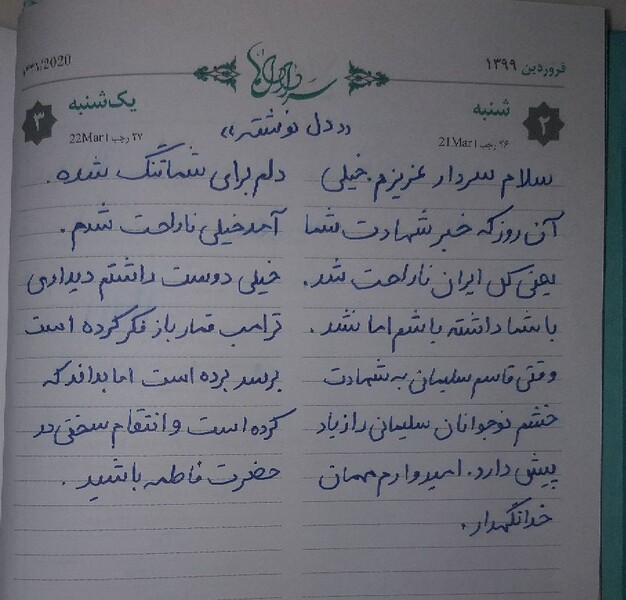 فروردین ۱۳۹۹
۱۳۹۹/2020
سردار دلها
شنبه
۲
۲۶ رجب | 21Mar
یک‌شنبه
۳
۲۷ رجب | 22Mar
«دل نوشته»
سلام سردار عزیزم. خیلی دلم برای شما تنگ شده.
آن روز که خبر شهادت شما آمد خیلی ناراحت شدم.
یعنی کل ایران ناراحت شد. خیلی دوست داشتم دیداری
با شما داشته باشم اما نشد. ترامپ قمار باز فکر کرده است
وقتی قاسم سلیمانی به شهادت برسد برده است اما بداند که
خشم نوجوانان سلیمانی را زیاد کرده است و انتقام سختی در
پیش دارد. امیدوارم مهمان حضرت فاطمه باشید.
خدانگهدار.